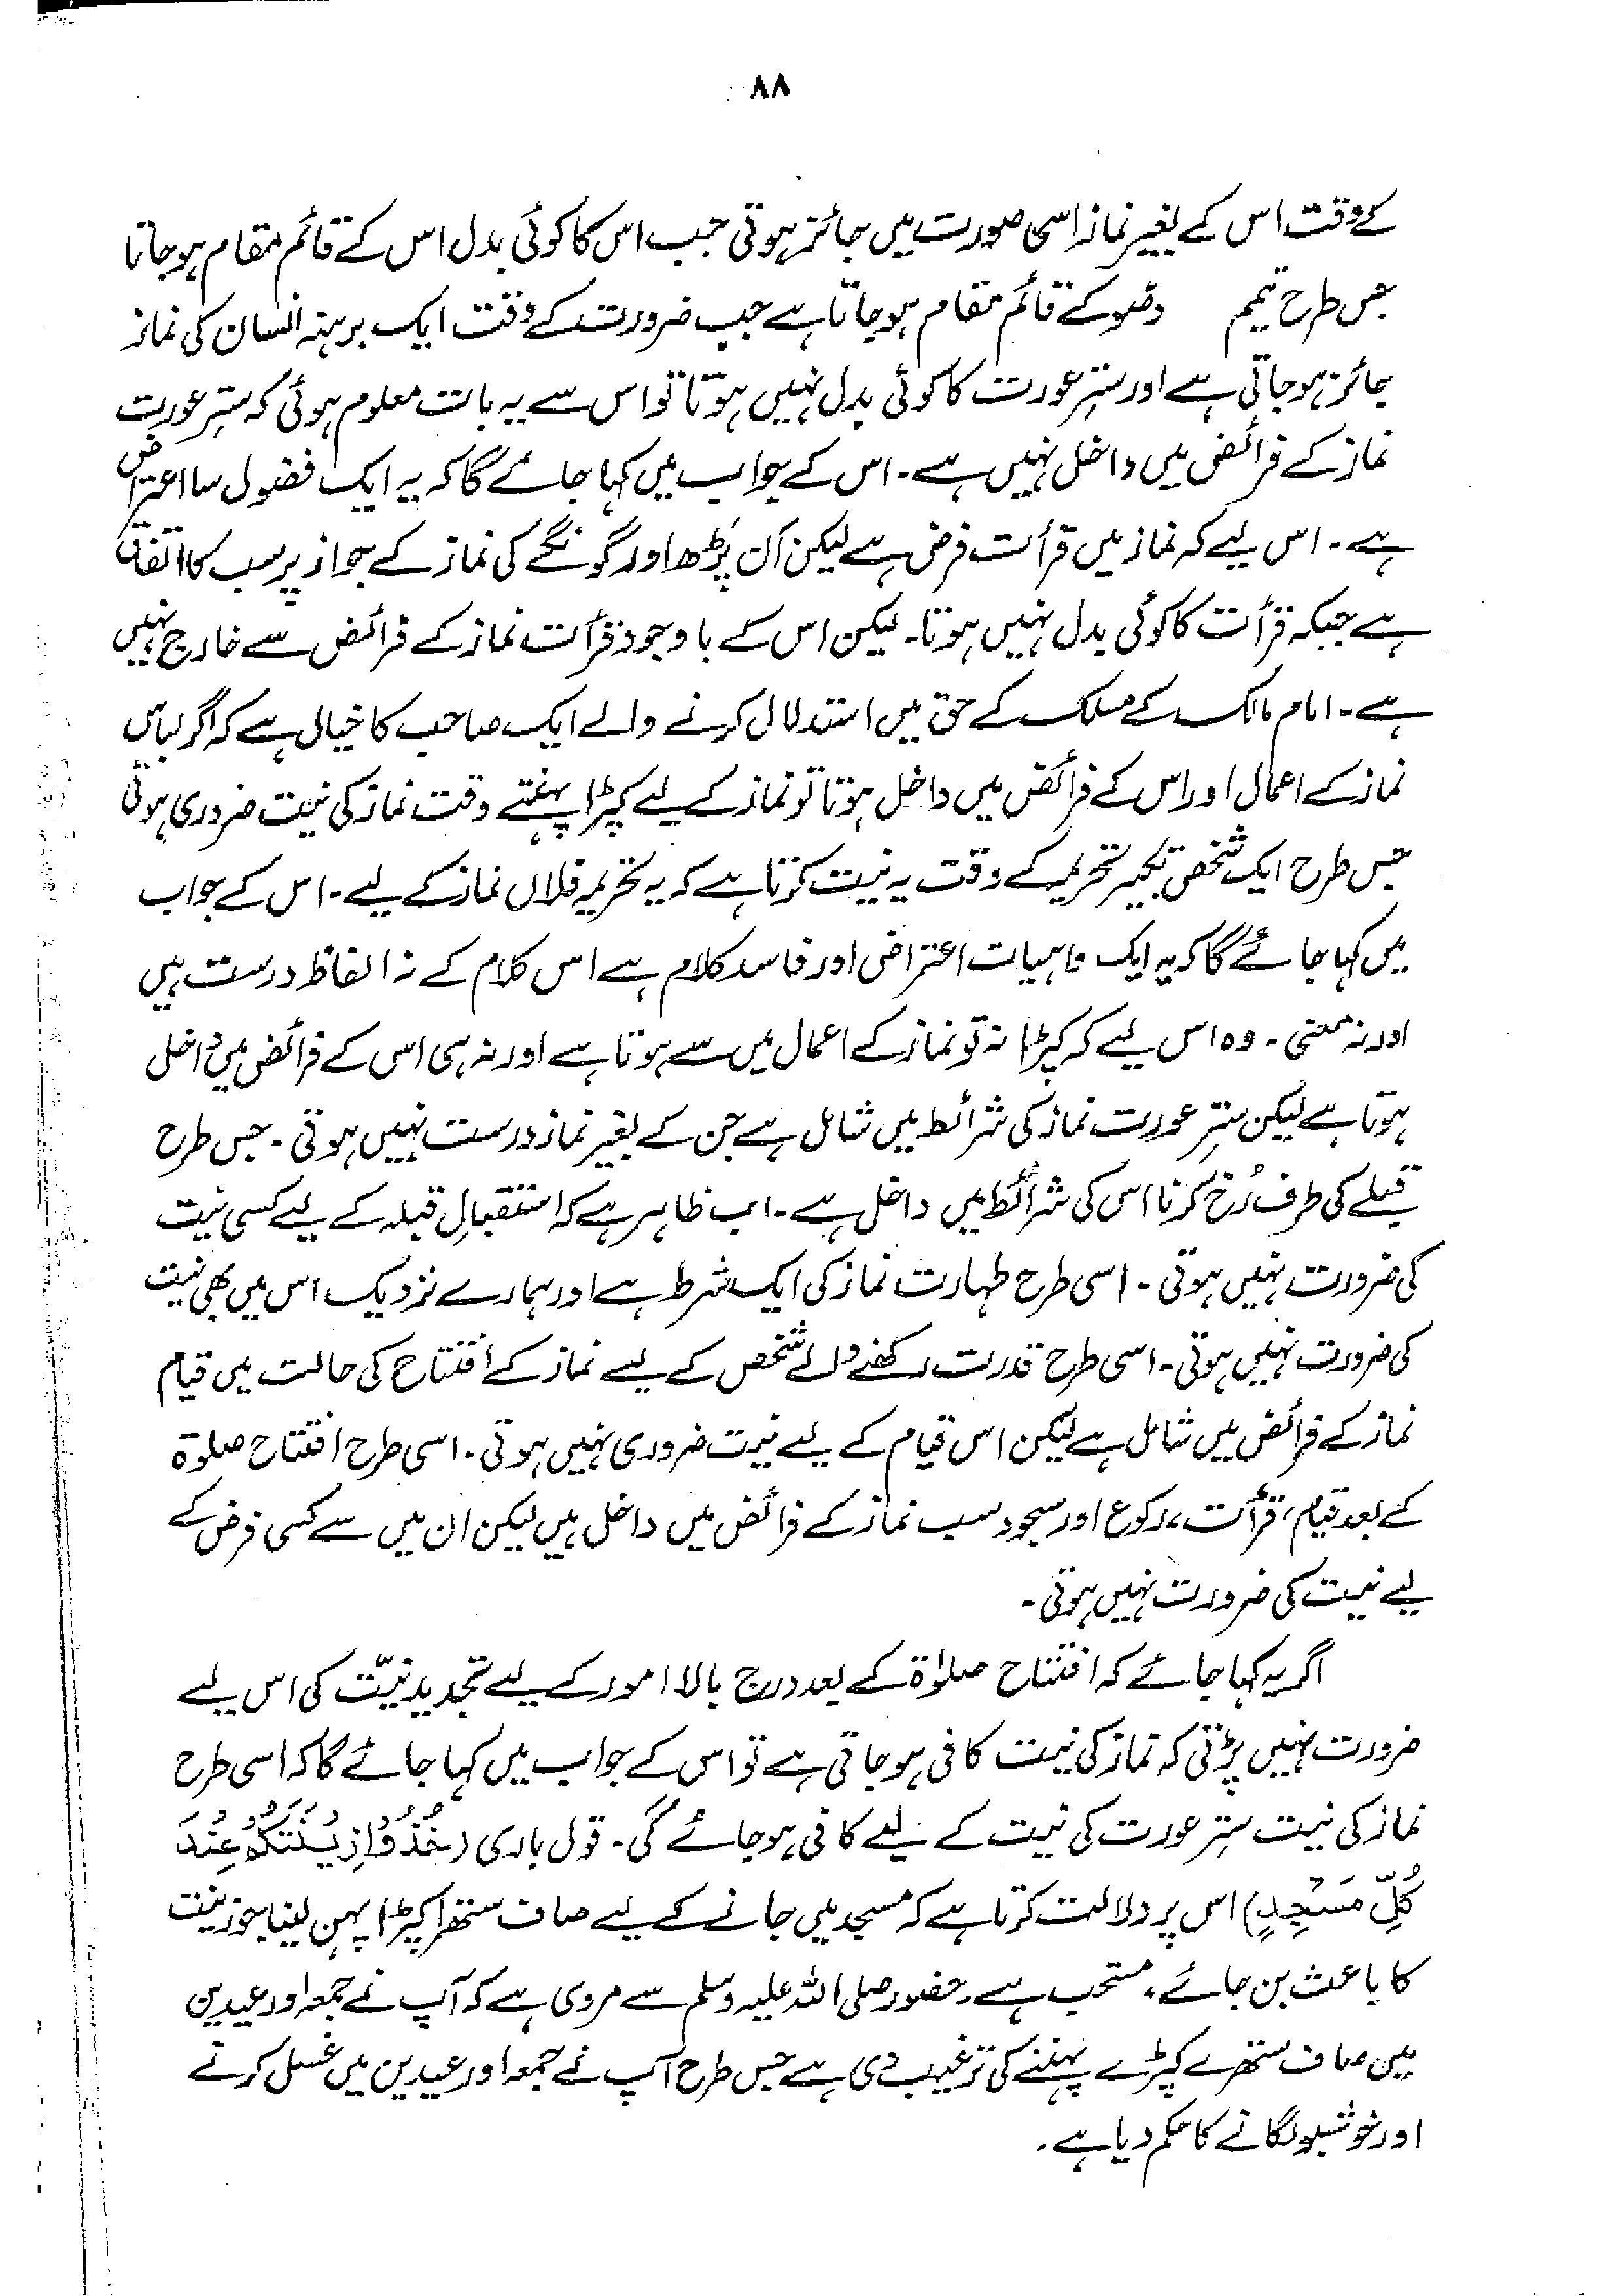 ۸۸
کے وقت اس کے بغیر نماز اسی صورت میں جائز ہوتی جب اس کا کوئی بدل اس کے قائم مقام ہو جاتا
جس طرح تیمم وضو کے قائم مقام ہو جاتا ہے جب ضرورت کے وقت ایک برہنہ انسان کی نماز
جائز ہو جاتی ہے اور سترِ عورت کا کوئی بدل نہیں ہوتا تو اس سے یہ بات معلوم ہوئی کہ سترِ عورت
نماز کے فرائض میں داخل نہیں ہے۔ اس کے جواب میں کہا جائے گا کہ یہ ایک فضول سا اعتراض
ہے۔ اس لیے کہ نماز میں قرأت فرض ہے لیکن اَن پڑھ اور گونگے کی نماز کے جواز پر سب کا اتفاق
ہے جبکہ قرأت کا کوئی بدل نہیں ہوتا۔ لیکن اس کے باوجود قرأت نماز کے فرائض سے خارج نہیں
ہے۔ امام مالک کے مسلک کے حق میں استدلال کرنے والے ایک صاحب کا خیال ہے کہ اگر لباس
نماز کے اعمال اور اس کے فرائض میں داخل ہوتا تو نماز کے لیے کپڑا پہنتے وقت نماز کی نیت ضروری ہوتی
جس طرح ایک شخص تکبیر تحریمہ کے وقت یہ نیت کرتا ہے کہ یہ تحریمہ فلاں نماز کے لیے۔ اس کے جواب
میں کہا جائے گا کہ یہ ایک واہیات اعتراض اور فاسد کلام ہے اس کلام کے نہ الفاظ درست ہیں
اور نہ معنی۔ وہ اس لیے کہ کپڑا نہ تو نماز کے اعمال میں سے ہوتا ہے اور نہ ہی اس کے فرائض میں داخل
ہوتا ہے لیکن سترِ عورت نماز کی شرائط میں شامل ہے جن کے بغیر نماز درست نہیں ہوتی۔ جس طرح
قبلے کی طرف رُخ کرنا اس کی شرائط میں داخل ہے۔ اب ظاہر ہے کہ استقبالِ قبلہ کے لیے کسی نیت
کی ضرورت نہیں ہوتی۔ اسی طرح طہارت نماز کی ایک شرط ہے اور ہمارے نزدیک اس میں بھی نیت
کی ضرورت نہیں ہوتی۔ اسی طرح قدرت رکھنے والے شخص کے لیے نماز کے افتتاح کی حالت میں قیام
نماز کے فرائض میں شامل ہے لیکن اس قیام کے لیے نیت ضروری نہیں ہوتی۔ اسی طرح افتتاح صلوۃ
کے بعد قیام، قرأت، رکوع اور سجود سب نماز کے فرائض میں داخل ہیں لیکن ان میں سے کسی فرض کے
لیے نیت کی ضرورت نہیں ہوتی۔
اگر یہ کہا جائے کہ افتتاح صلوٰۃ کے بعد درج بالا امور کے لیے تجدید نیّت کی اس لیے
ضرورت نہیں پڑتی کہ نماز کی نیت کافی ہو جاتی ہے تو اس کے جواب میں کہا جائے گا کہ اسی طرح
نماز کی نیت سترِ عورت کی نیت کے لیے کافی ہو جائے گی۔ قول باری (خُذُوْا زِيْنَتَكُمْ عِنْدَ
كُلِّ مَسْجِدٍ) اس پر دلالت کرتا ہے کہ مسجد میں جانے کے لیے صاف ستھرا کپڑا پہن لینا جو زینت
کا باعث بن جائے، مستحب ہے۔ حضور صلی اللہ علیہ وسلم سے مروی ہے کہ آپ نے جمعہ اور عیدین
میں صاف ستھرے کپڑے پہننے کی ترغیب دی ہے جس طرح آپ نے جمعہ اور عیدین میں غسل کرنے
اور خوشبو لگانے کا حکم دیا ہے۔